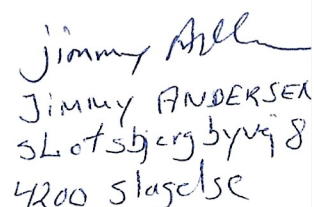 Jimmy
JIMMY ANDERSEN
sLotsbjergbyvej 8
4200 slagelse